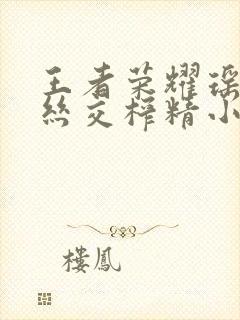 王者荣耀瑶
絲交榨精小
樓鳳